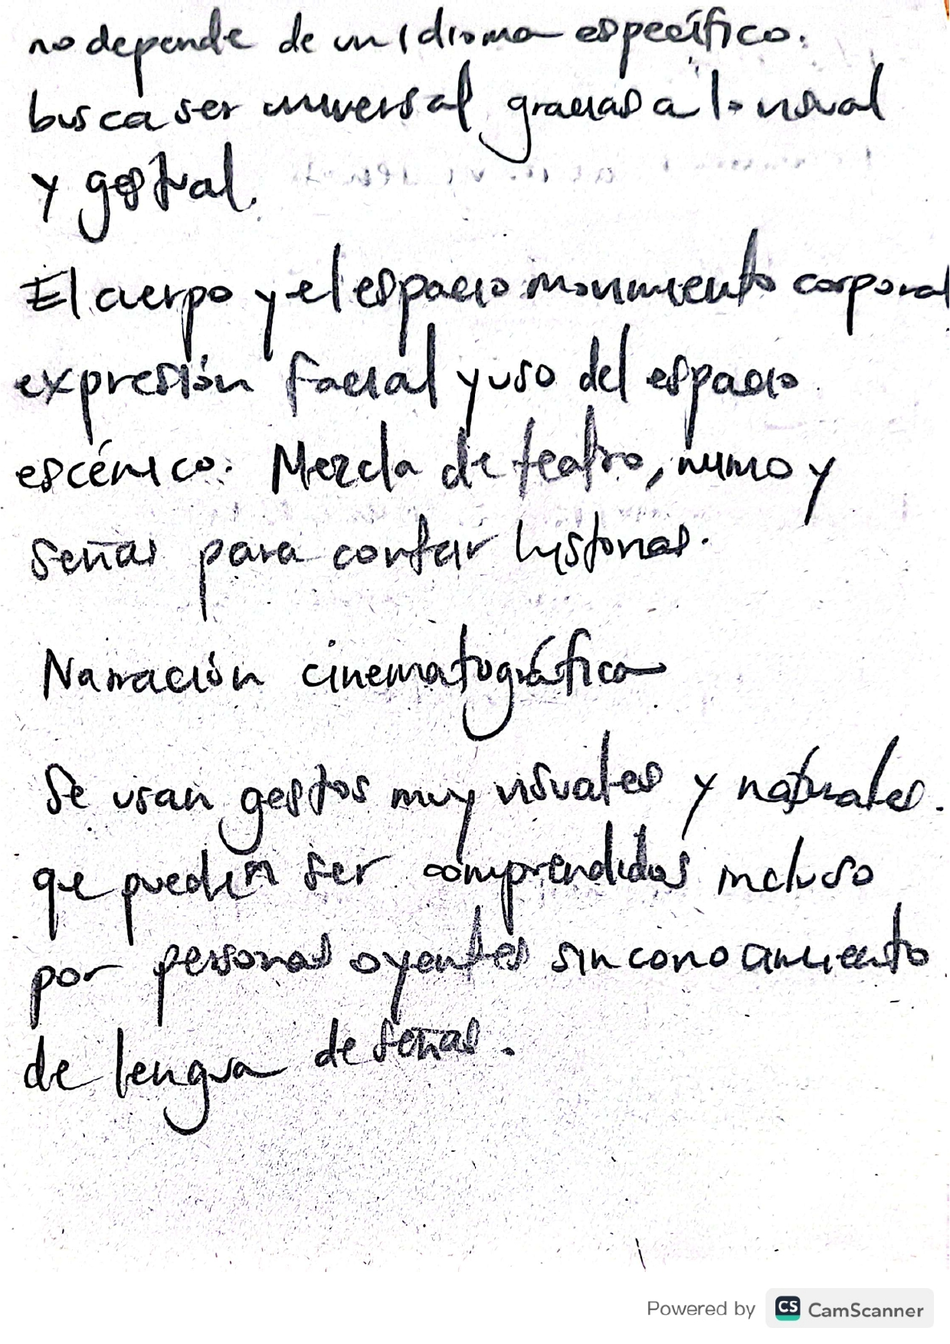 no depende de un idioma específico.
busca ser universal gracias a lo visual
y gestual.
El cuerpo y el espacio movimiento corporal
expresión facial y uso del espacio
escénico. Mezcla de teatro, mimo y
señas para contar historias.
Narración cinematográfica
Se usan gestos muy visuales y naturales.
que pueden ser comprendidos incluso
por personas oyentes sin conocimiento
de lengua de señas.
Powered by CS CamScanner